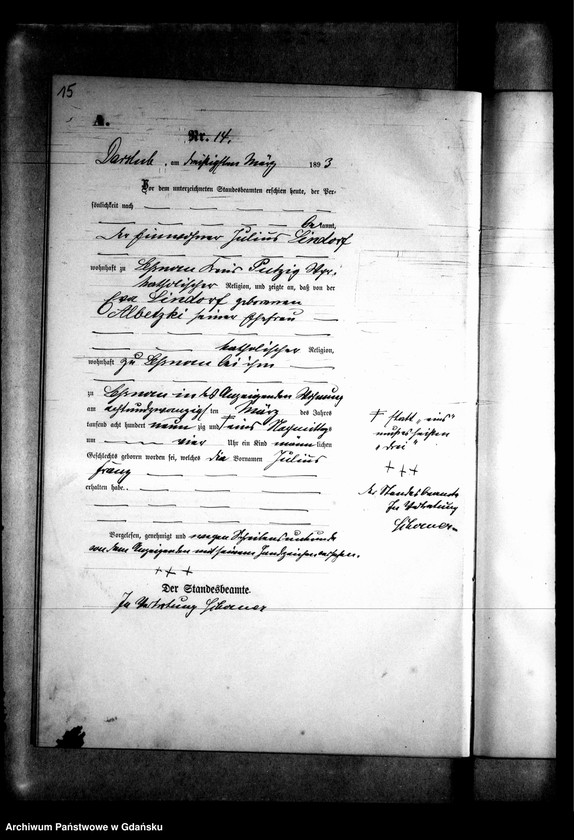 15
A.
Nr. 14.
Darslub, am dreißigsten März 1893
Vor dem unterzeichneten Standesbeamten erschien heute, der Per-
sönlichkeit nach
bekannt,
der Einwohner Julius Lindorf
wohnhaft zu Kreis Putzig Wpr.
katholischer Religion, und zeigte an, daß von der
Eva Lindorf geborenen
Albetzki seiner Ehefrau
katholischer Religion,
wohnhaft zu bei ihm
zu in des Anzeigenden Wohnung
am achtundzwanzigsten März des Jahres
tausend acht hundert neunzig und † eins Nachmittags
um vier Uhr ein Kind männlichen
Geschlechts geboren worden sei, welches die Vornamen Julius
Franz
erhalten habe.
† statt „eins"
muß es heißen
„drei"
+++
Der Standesbeamte
In Vertretung
Vorgelesen, genehmigt und wegen Schreibensunkunde
von dem Anzeigenden mit seinem Handzeichen versehen.
+++
Der Standesbeamte.
In Vertretung
Archiwum Państwowe w Gdańsku